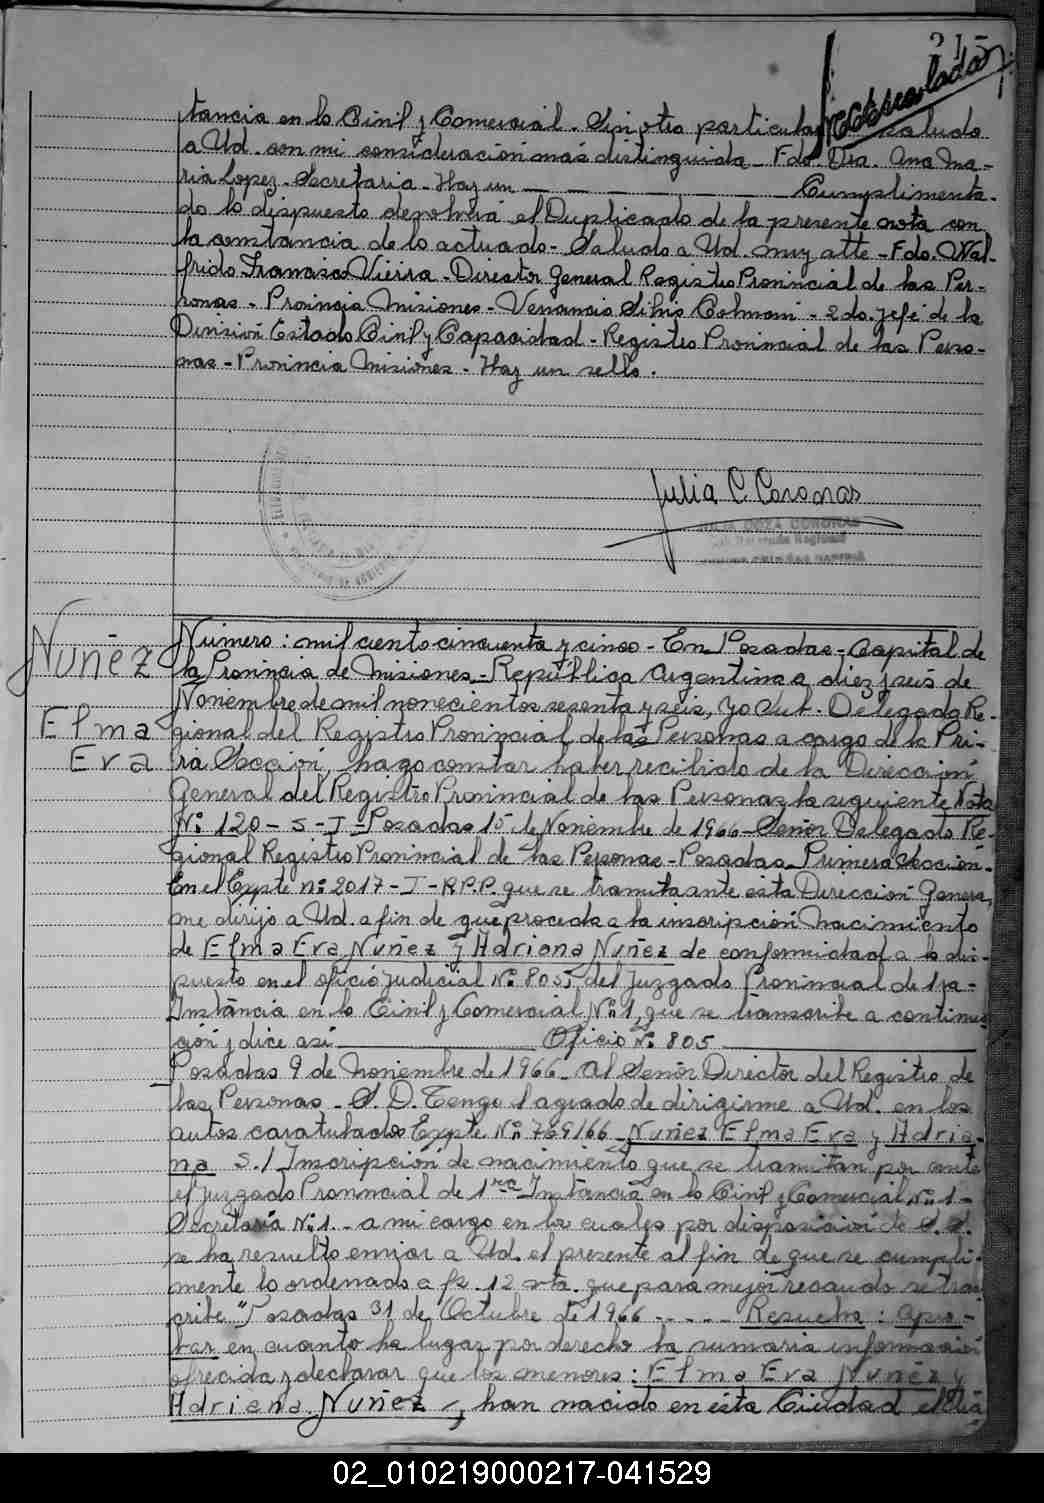 21
tancia en lo Civil y Comercial. Sin otro particular saludo
a Ud. con mi consideración más distinguida - Fdo. Dra. Ana Ma-
ria Lopez. Secretaria - Hay un Cumplimenta-
do lo dispuesto devolverá el Duplicado de la presente nota con
la constancia de lo actuado - Saludo a Ud. muy atte - Fdo. Wal-
frido Francisco Vieira - Director General Registro Provincial de las Per-
sonas - Provincia Misiones - Venancio Colman - 2do. jefe de la
División Estado Civil y Capacidad - Registro Provincial de las Perso-
nas - Provincia Misiones - Hay un sello.
Julia C. Coronas
Nuñez
Elma
Eva
Número: mil ciento cincuenta y cinco - En Posadas - Capital de
la Provincia de Misiones - República Argentina a diez y seis de
Noviembre de mil novecientos sesenta y seis, yo Sub. Delegado Re-
gional del Registro Provincial de las Personas a cargo de la Pri-
ra Sección, hago constar haber recibido de la Dirección
General del Registro Provincial de las Personas la siguiente Nota
Nº 120 - S - I - Posadas 15 de Noviembre de 1966 - Señor Delegado Re-
gional Registro Provincial de las Personas - Posadas - Primera Sección -
En el Expte nº 2017 - I - R.P.P. que se tramita ante esta Dirección General,
me dirijo a Ud. a fin de que proceda a la inscripción nacimiento
de Elma Eva Nuñez y Adriana Nuñez de conformidad a lo dis-
puesto en el oficio judicial Nº 8055 del Juzgado Provincial de 1ra -
Instancia en lo Civil y Comercial Nº 1, que se transcribe a continua
ción y dice así Oficio Nº 805
Posadas 9 de Noviembre de 1966 - Al Señor Director del Registro de
las Personas - S. D. Tengo el agrado de dirigirme a Ud. en los
autos caratulados Expte Nº 769/66 Nuñez Elma Eva y Adria-
na S./ Inscripción de nacimiento que se tramitan por ante
el Juzgado Provincial de 1ra Instancia en lo Civil y Comercial Nº 1 -
Secretaría Nº 1. - a mi cargo en los cuales por disposición de S. S.
se ha resuelto enviar a Ud. el presente al fin de que se cumpli-
mente lo ordenado a fs. 12 vta. que para mejor recaudo se trans
cribe "Posadas 31 de Octubre de 1966 - - - - - Resuelvo: Apro-
bar en cuanto ha lugar por derecho la sumaria información
ofrecida y declarar que los menores: Elma Eva Nuñez y
Adriana Nuñez -, han nacido en esta Ciudad el día
02_010219000217-041529